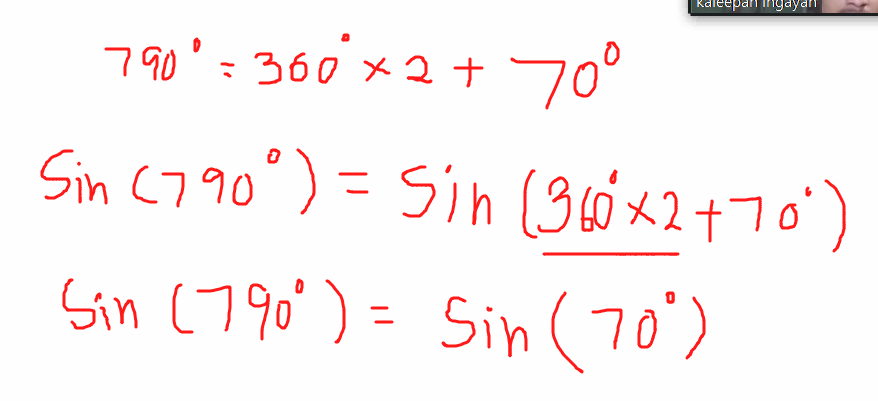 kaleepan ingayan
790° = 360° × 2 + 70°
Sin (790°) = Sin (360° × 2 + 70°)
Sin (790°) = Sin (70°)